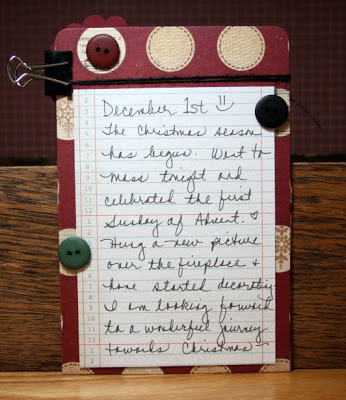 December 1st
The Christmas season
has begun. Went to
mass tonight and
celebrated the first
Sunday of Advent. ♡
Hung a new picture
over the fireplace &
have started decorating.
I am looking forward
to a wonderful journey
towards Christmas ~